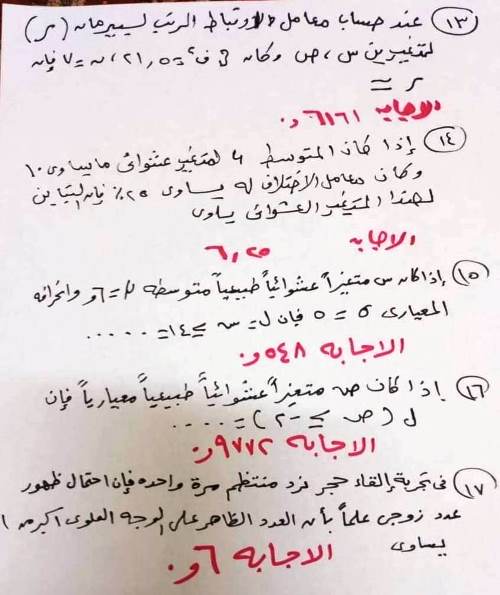 ١٣ عند حساب معامل الارتباط الرتب لسبيرمان (ر)
لمتغيرين س ، ص وكان ف٢ = ٢١,٥ ، ن = ٧ فإن
ر =
الاجابه ٦١٦١ و.
١٤ إذا كان المتوسط لمتغير عشوائى ما يساوى ١٠
وكان معامل الاختلاف له يساوى ٢٥ ٪ فإن التباين
لهذا المتغير العشوائى يساوى
الاجابه ٦,٢٥
١٥ إذا كان س متغيراً عشوائياً طبيعياً متوسطه μ = ٦ و وانحرافه
المعيارى σ = ٥ فإن ل = س ≥ ١٤ = .....
الاجابه ٥٤٨ و.
١٦ إذا كان ص متغيراً عشوائياً طبيعياً معيارياً فإن
ل ( ص ≥ -٢ ) = ....
الاجابه ٩٧٧٢ و.
١٧ فى تجربة إلقاء حجر نرد منتظم مرة واحده فإن احتمال ظهور
عدد زوجى علماً بأن العدد الظاهر على الوجه العلوى اكبر من ١
يساوى
الاجابه ٦ و.